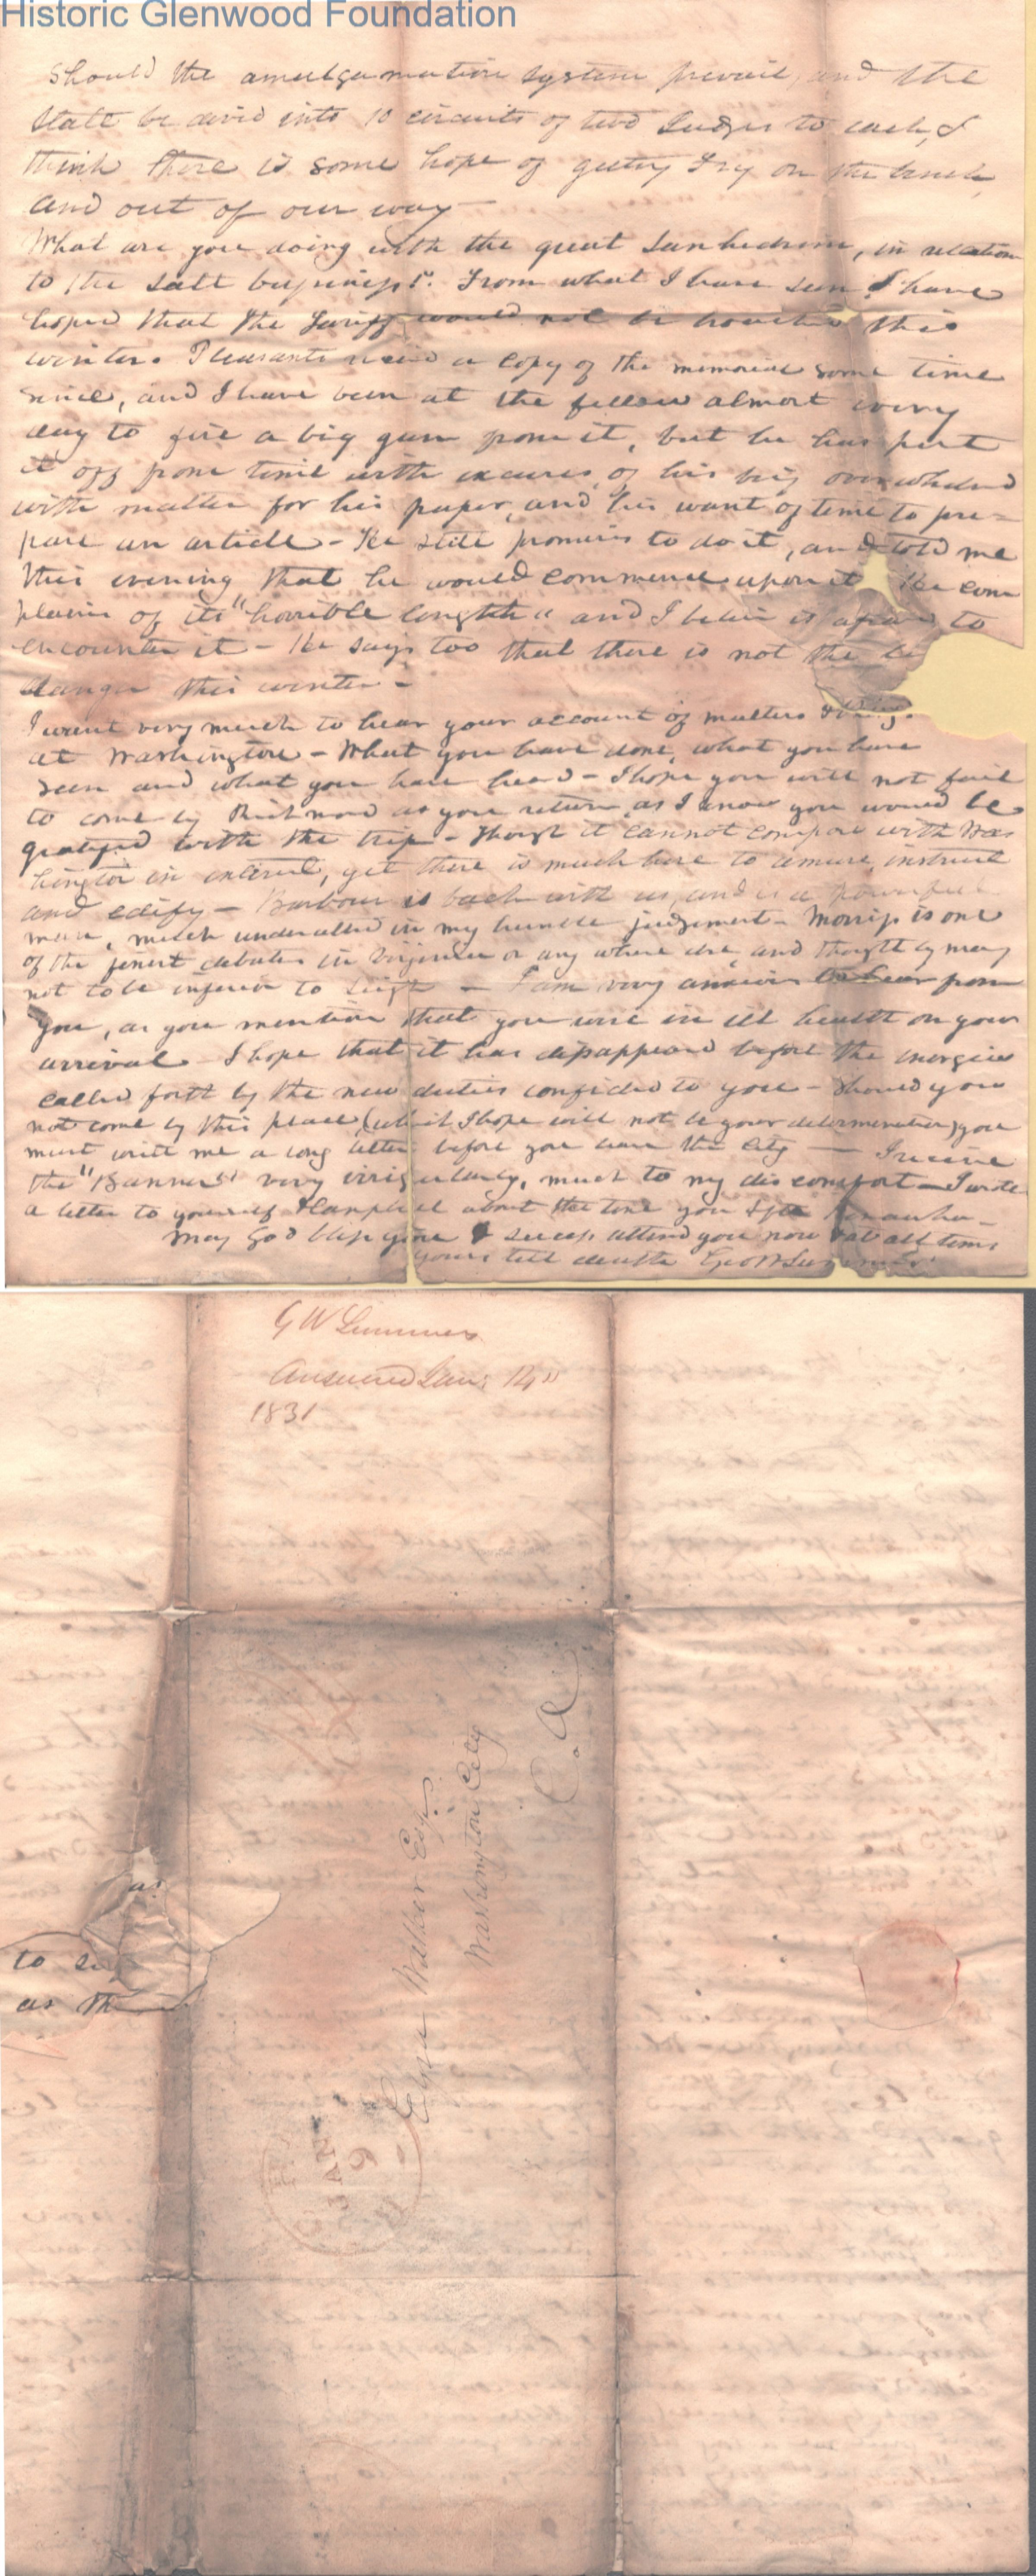 Historic Glenwood Foundation
Should the amalgamation system prevail, and the
State be divid into 10 circuits of two Judges to each, I
think there is some hope of getting Fry on the bench
and out of our way —
What are you doing with the great Sanhedrim, in relation
to the salt business? From what I have seen I have
hoped that the Tariff would not be touched this
winter. Pleasants recvd a copy of the memorial some time
since, and I have been at the fellow almost every
day to fire a big gun from it, but he has put
it off from time with excuses of his being overwhelmed
with matter for his paper, and his want of time to pre=
pare an article - He still promises to do it, and told me
this evening that he would commence upon it He com
plains of its "horrible length" and I believe is afraid to
encounter it - He says too that there is not the
danger this winter -
I want very much to hear your account of matters & things
at Washington - What you have done, what you have
seen and what you have heard - I hope you will not fail
to come by Richmond as you return, as I know you would be
gratified with the trip - Though it cannot compare with Was
hington in interest, yet there is much here to amuse, instruct
and edify - Barbour is back with us, and is a powerful
man, much underrated in my humble judgement - Morriss is one
of the finest debaters in Virginia or any where else, and thought by many
not to be inferior to Leigh - I am very anxious to hear from
you, as you mention that you were in ill health on your
arrival - I hope that it has disappeared before the energies
called forth by the new duties confided to you - Should you
not come by this place (which I hope will not be your determination) you
must write me a long letter before you leave the City — I receive
the "Banner" very irregularly, much to my discomfort - I wrote
a letter to yourself & Campbell about the time you left Kanawha -
May God bless you & success attend you now & at all times
yours till death Geo W Summers
G W Summers
Answered Jan: 14"
1831
as
to
as th
Walker Esqr.
Washington City
D.C.
JAN
9